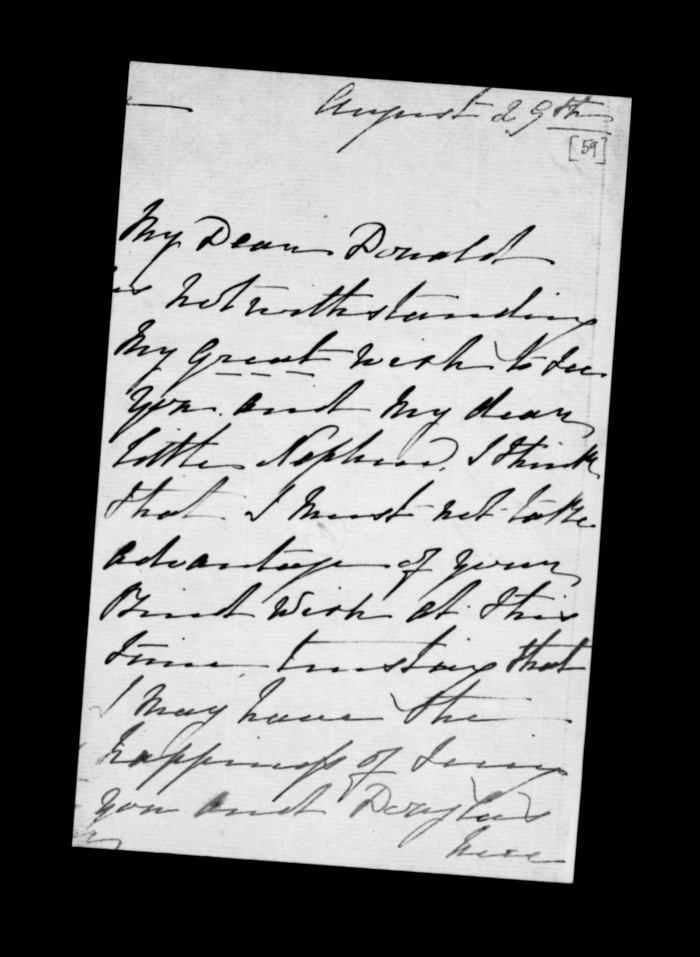 August 29th
[59]
My Dear Donald
notwithstanding
My great wish to see
you and My dear
little Nephew, I think
that I must not take
advantage of your
Kind Wish at this
time trusting that
I may have the
happiness of seeing
you and Douglas
here